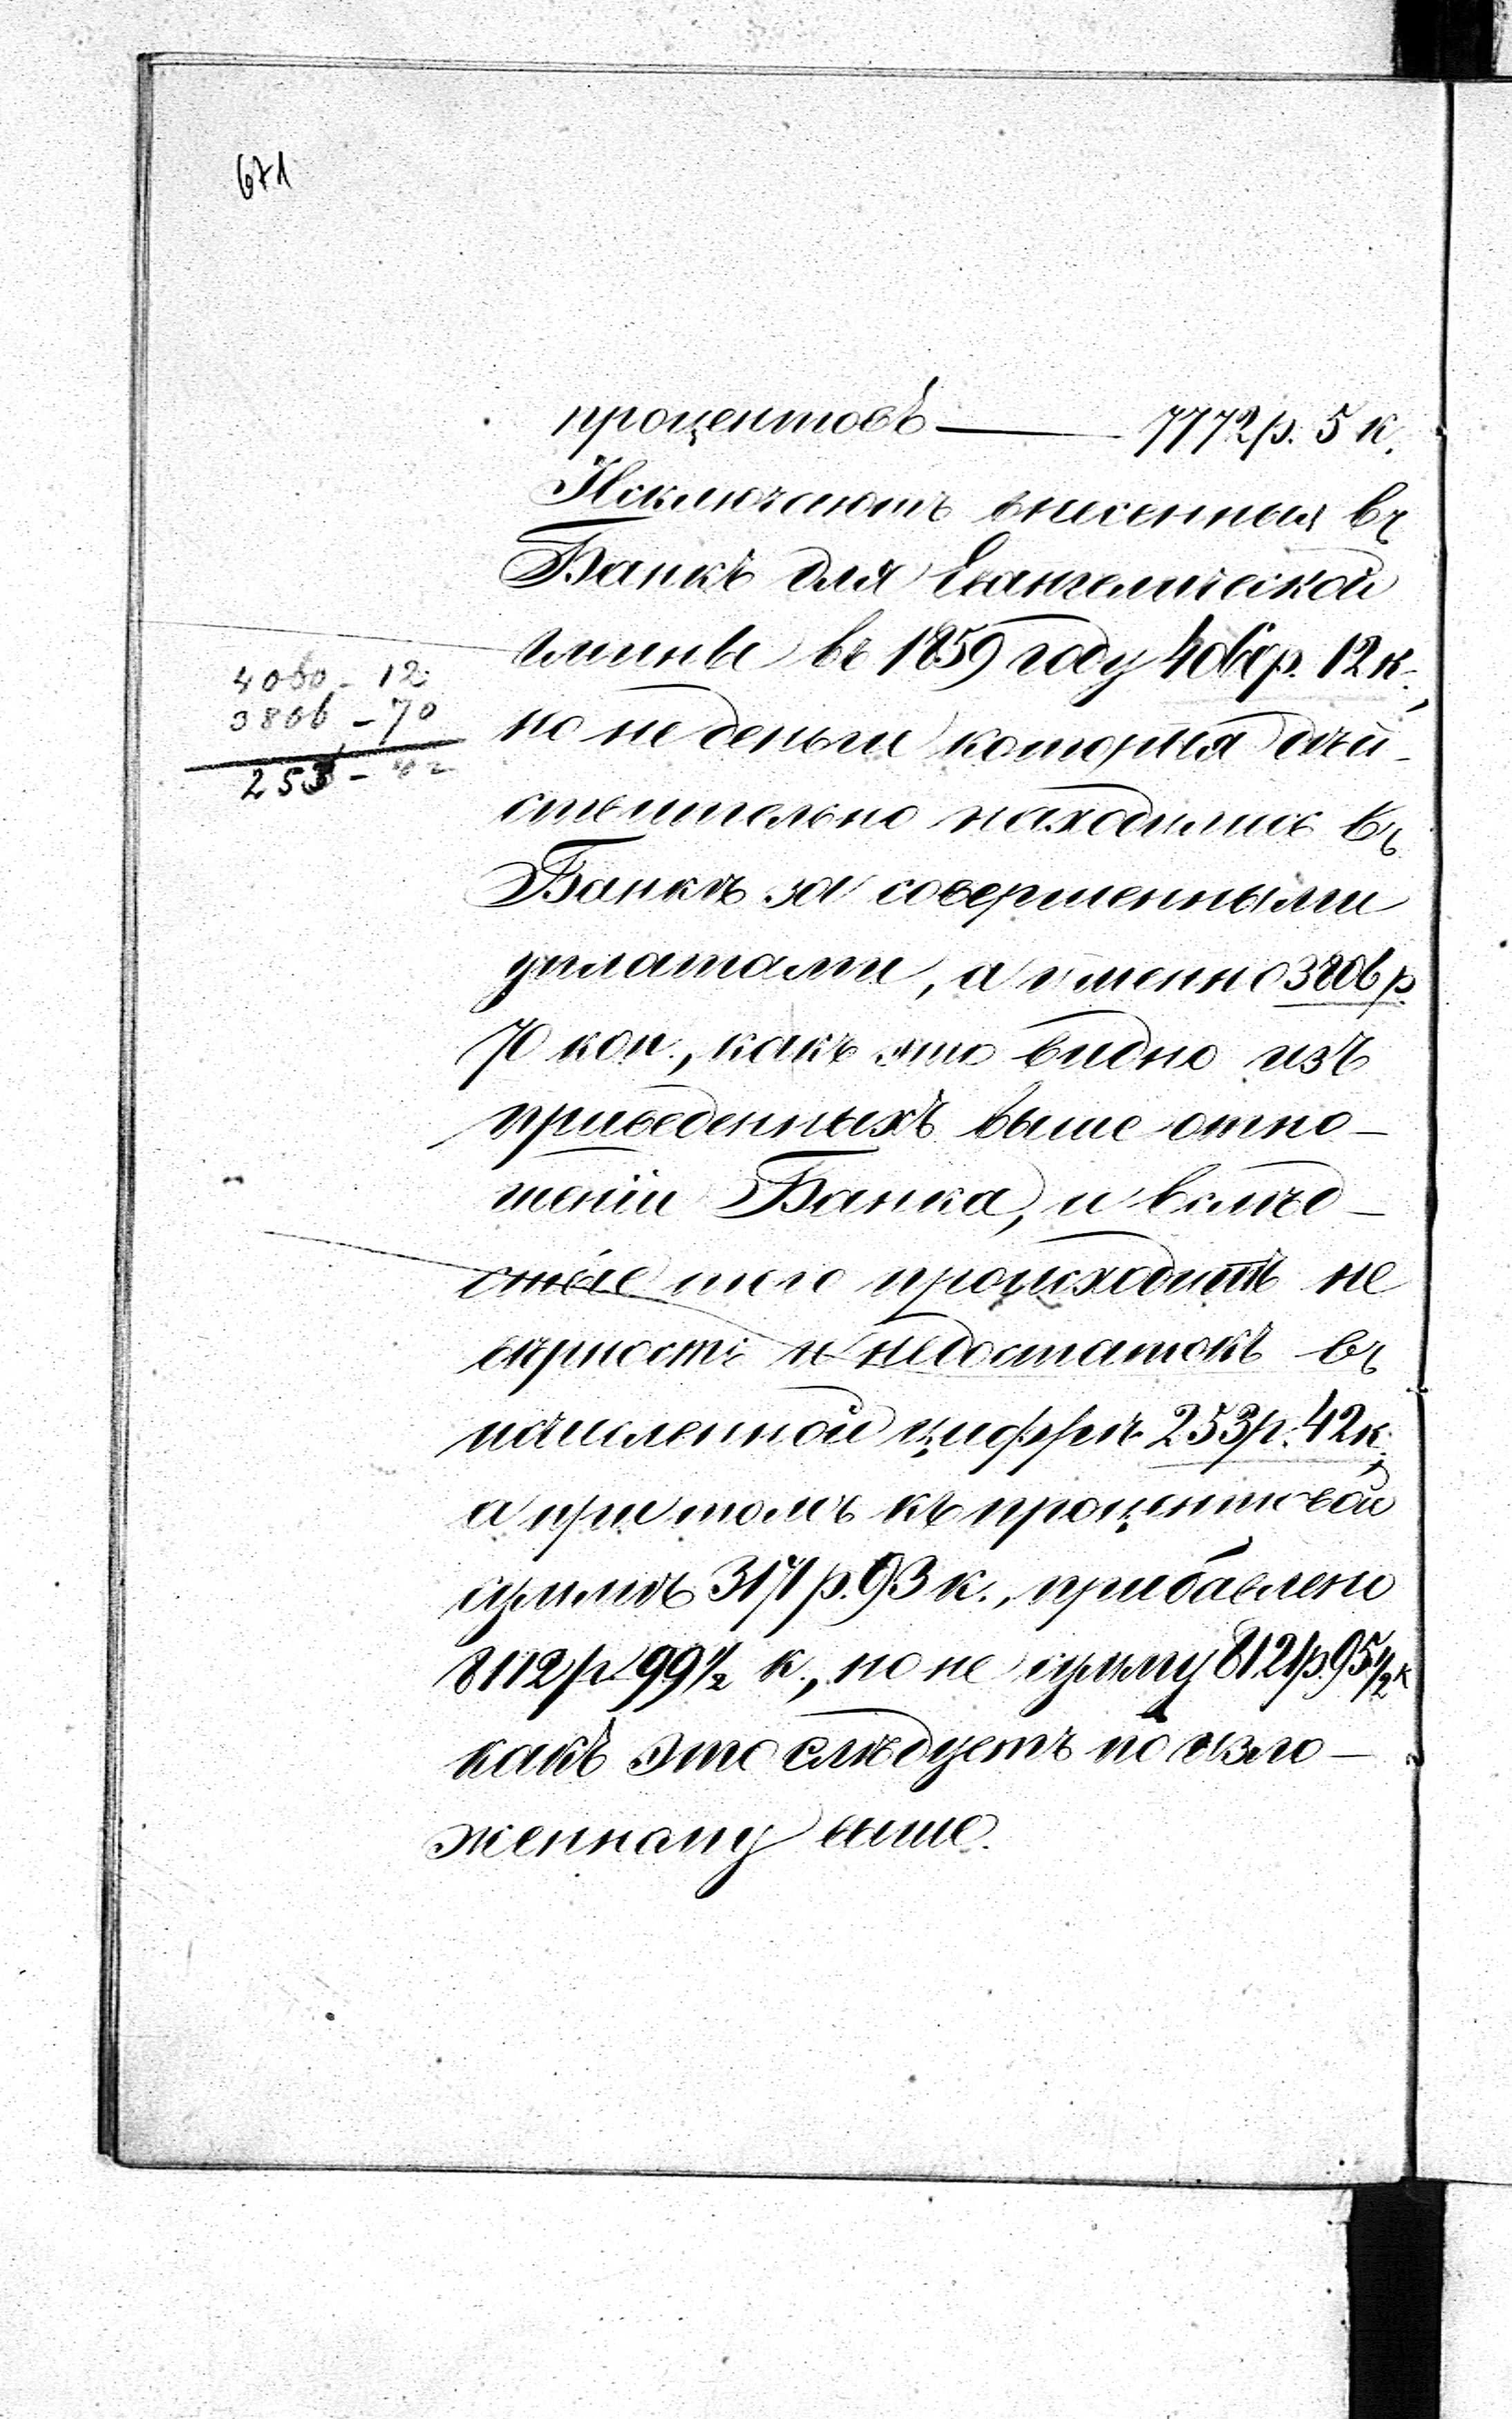 671
процентовъ — 7772 р. 5 к.
Исключаютъ внесенныя въ
Банкъ для Евангелической
гмины въ 1859 году 4060 р. 12 к.,
но не деньги которыя дѣй-
ствительно находились въ
Банкѣ за совершенными
уплатами, а именно 3806 р.
70 коп., какъ это видно изъ
приведенныхъ выше отно-
шеніи Банка, и вслѣд-
ствіе того происходитъ не
вѣрность и недостатокъ въ
исчисленной цифрѣ 253 р. 42 к.,
а при томъ къ процентовой
суммѣ 3171 р. 93 к., прибавлено
8112 р 99 1/2 к., но не сумму 8121 р. 95 1/2 к
какъ это слѣдуетъ по изло-
женному выше.
4060 - 12
3806 - 70
253 - 42